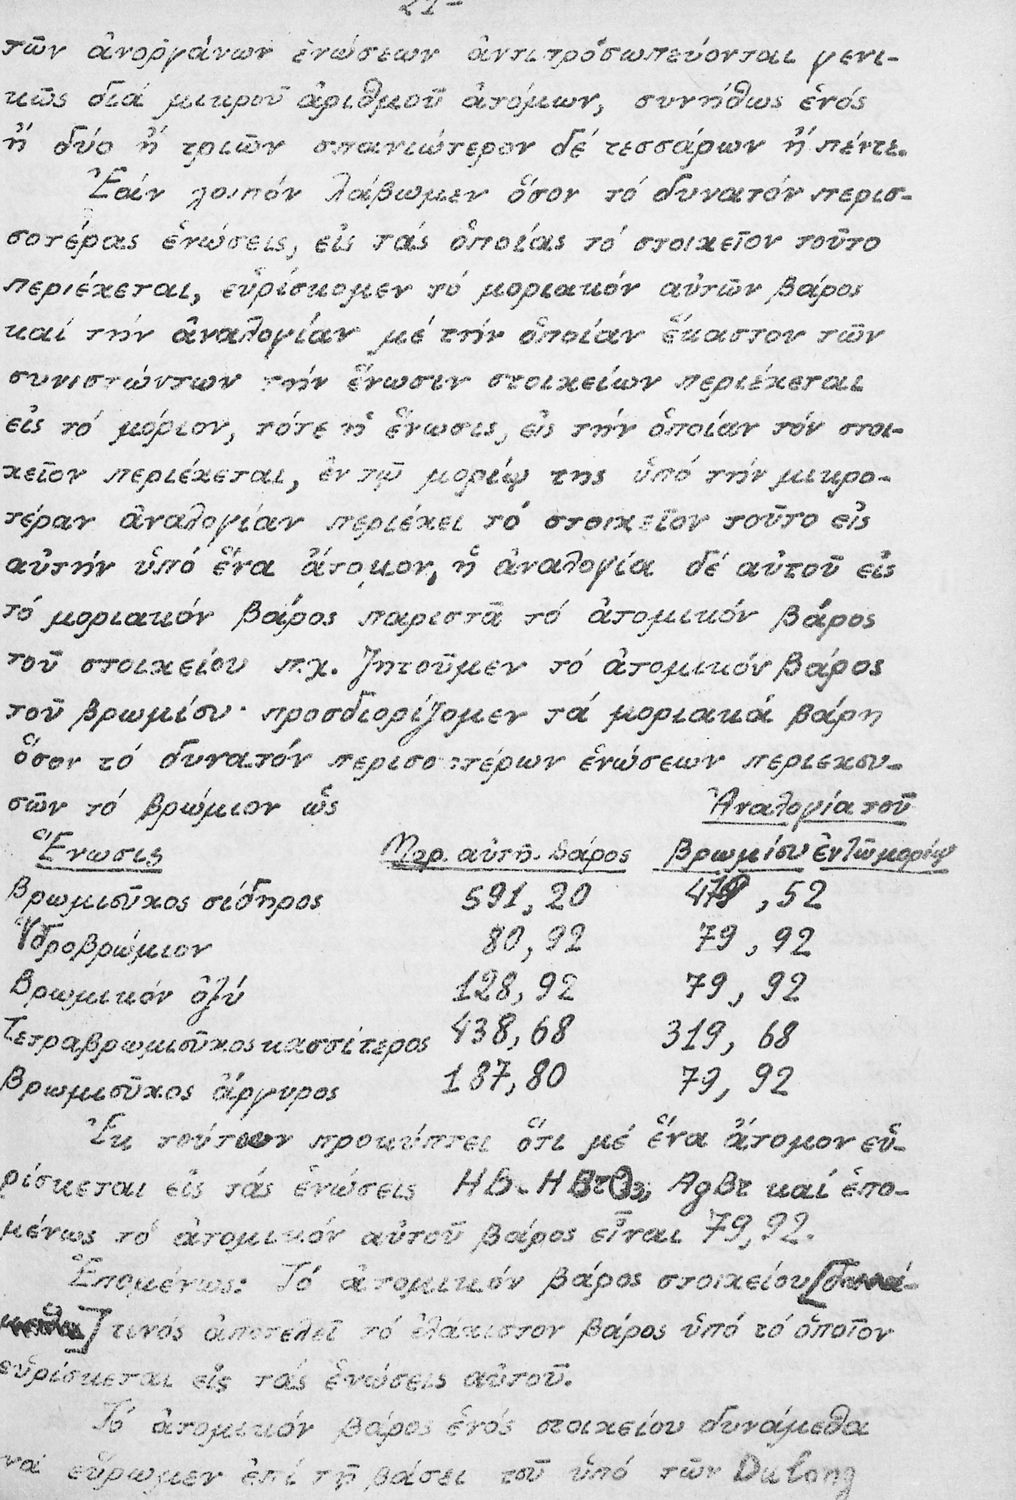 21-
τῶν ἀνοργάνων ἑνώσεων ἀντιπρόσωπεύονται γενι-
κῶς διά μικροῦ ἀριθμοῦ ἀτόμων, συνήθως ἑνός
ἤ δύο ἤ τριῶν σπανιώτερον δέ τεσσάρων ἤ πέντε.
Ἐάν λοιπόν λάβωμεν ὅσον τό δυνατόν περισ-
σοτέρας ἑνώσεις, εἰς τάς ὁποίας τό στοιχεῖον τοῦτο
περιέχεται, εὑρίσκομεν τό μοριακόν αὐτῶν βάρος
καί τήν ἀναλογίαν μέ τήν ὁποίαν ἕκαστον τῶν
συνιστώντων τήν ἕνωσιν στοιχείων περιέχεται
εἰς τό μόριον, τότε ἡ ἕνωσις, εἰς τήν ὁποίαν τόν στοι-
χεῖον περιέχεται, ἐν τῷ μορίῳ της ὑπό τήν μικρο-
τέραν ἀναλογίαν περιέχει τό στοιχεῖον τοῦτο εἰς
αὐτήν ὑπό ἕνα ἄτομον, ἡ ἀναλογία δέ αὐτοῦ εἰς
τό μοριακόν βάρος παριστᾶ τό ἀτομικόν βάρος
τοῦ στοιχείου π.χ. ζητοῦμεν τό ἀτομικόν βάρος
τοῦ βρωμίου· προσδιορίζομεν τά μοριακά βάρη
ὅσον τό δυνατόν περισσοτέρων ἑνώσεων περιεχου-
σῶν τό βρώμιον ὡς
Ἀναλογία τοῦ
Ἕνωσις Μορ. αὐτῆ. βάρος βρωμίου ἐν τῶ μορίῳ
Βρωμιοῦχος σίδηρος 591,20 479,52
Ὑδροβρώμιον 80,92 79,92
Βρωμικόν ὀξύ 128,92 79,92
Τετραβρωμιοῦχος κασσίτερος 438,68 319,68
Βρωμιοῦχος ἄργυρος 187,80 79,92
Ἐκ τούτων προκύπτει ὅτι μέ ἕνα ἄτομον εὑ-
ρίσκεται εἰς τάς ἑνώσεις HB. HBrO3, AgBr καί ἑπο-
μένως τό ἀτομικόν αὐτοῦ βάρος εἶναι 79,92.
Ἑπομένως: Τό ἀτομικόν βάρος στοιχείου
τινός ἀποτελεῖ τό ἐλάχιστον βάρος ὑπό τό ὁποῖον
εὑρίσκεται εἰς τάς ἑνώσεις αὐτοῦ.
Τό ἀτομικόν βάρος ἑνός στοιχείου δυνάμεθα
νά εὕρωμεν ἐπί τῇ βάσει τοῦ ὑπό τῶν Dulong